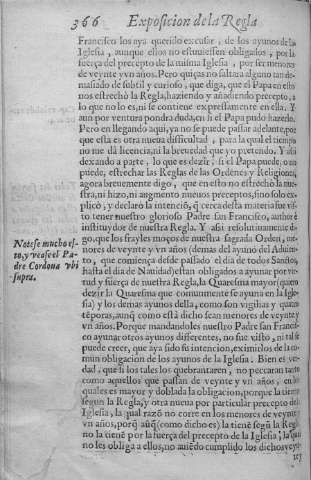 366 Exposicion de la Regla
Francisco los aya querido excusar, de los ayunos de la
Iglesia, aunque ellos no estuuiessen obligados, por la
fuerça del precepto de la misma Iglesia, por ser menores
de veynte y vn años. Pero quiças no faltara alguno tan de-
masiado de subtil y curioso, que diga, que el Papa en esto
nos estrechò la Regla, haziendo y añadiendo precepto, a
lo que no lo es, ni se contiene expressamente en ella. Y
aun por ventura pondra duda, en si el Papa pudo hazerlo.
Pero en llegando aqui, ya no se puede passar adelante, por
que esta es otra nueua difficultad, para la qual el tiempo
no me dà licencia, ni la breuedad que yo pretendo. Y assi
dexando a parte, lo que es dezir, si el Papa puede, o no
puede, estrechar las Reglas de las Ordenes y Religiones,
agora breuemente digo, que en esto no estrechò la nue-
stra, ni hizo, ni augmento nueuos preceptos, sino solo ex-
plicò, y declarò la intenciõ, q̃ cerca desta materia fue vis-
to tener nuestro glorioso Padre san Francisco, author è
instituydor de nuestra Regla. Y assi resolutiuamente di-
go, que los frayles moços de nuestra sagrada Orden, me-
nores de veynte y vn años (demas del ayuno del Aduien-
to, que comiença desde passado el dia de todos Santos,
hasta el dia de Nauidad) estan obligados a ayunar por vir-
tud y fuerça de nuestra Regla, la Quaresma mayor (quero
dezir la Quaresma que comunmente se ayuna en la Igle-
sia) y los demas ayunos della, como son vigilias y quatro
tẽporas, aunq̃ como està dicho sean menores de veynte y
vn años. Porque mandandoles nuestro Padre san Francis-
co ayunar otros ayunos differentes, no fue visto, ni tal se
puede creer, que aya sido su intencion, eximirlos de la co-
mun obligacion de los ayunos de la Iglesia. Bien es ver-
dad, que si los tales los quebrantaren, no peccaran tanto
como aquellos que passan de veynte y vn años, en los
quales es mayor y doblada la obligacion, porque la tienen
segun la Regla, y otra nueua por particular precepto de la
Iglesia, la qual razõ no corre en los menores de veynte y
vn años, porq̃ aũq̃ (como dicho es) la tienẽ segũ la Regla
no la tienẽ por la fuerça del precepto de la Iglesia, la qual
no les obliga a ellos, no auiẽdo cumplido los dichos veyn-
Notese mucho es-
to, y vease el Pa-
dre Cordoua vbi
supra.